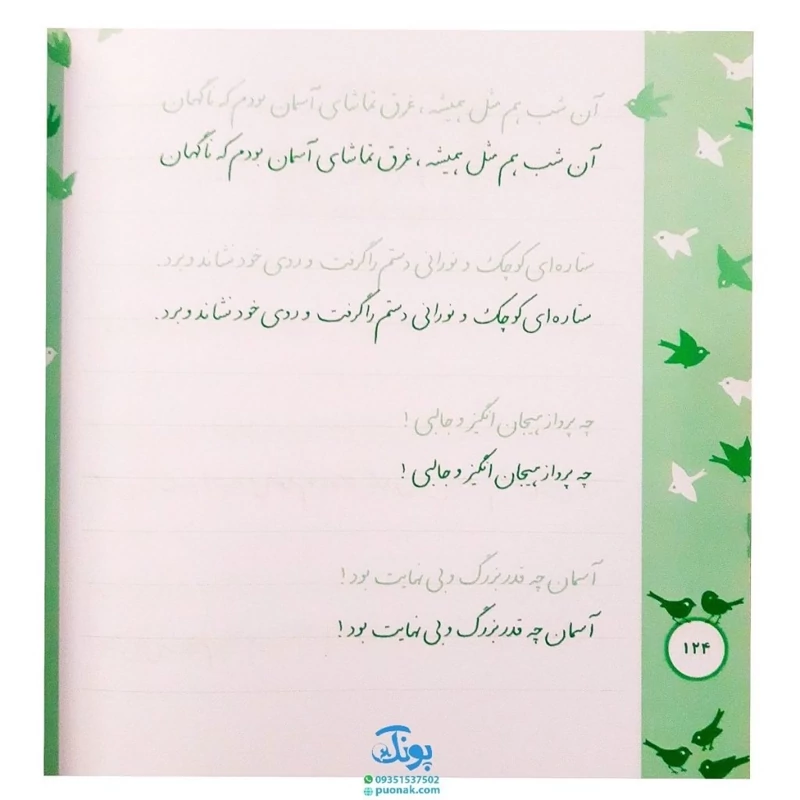 آن شب هم مثل همیشه ، غرق تماشای آسمان بودم که ناگهان
آن شب هم مثل همیشه ، غرق تماشای آسمان بودم که ناگهان
ستاره‌ای کوچک و نورانی دستم را گرفت و روی خود نشاند و برد.
ستاره‌ای کوچک و نورانی دستم را گرفت و روی خود نشاند و برد.
چه پرواز هیجان انگیز و جالبی !
چه پرواز هیجان انگیز و جالبی !
آسمان چه قدر بزرگ و بی نهایت بود !
آسمان چه قدر بزرگ و بی نهایت بود !
۱۲۴
پونک
09351537502
puonak.com